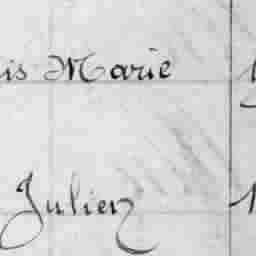 is Marie
Julien